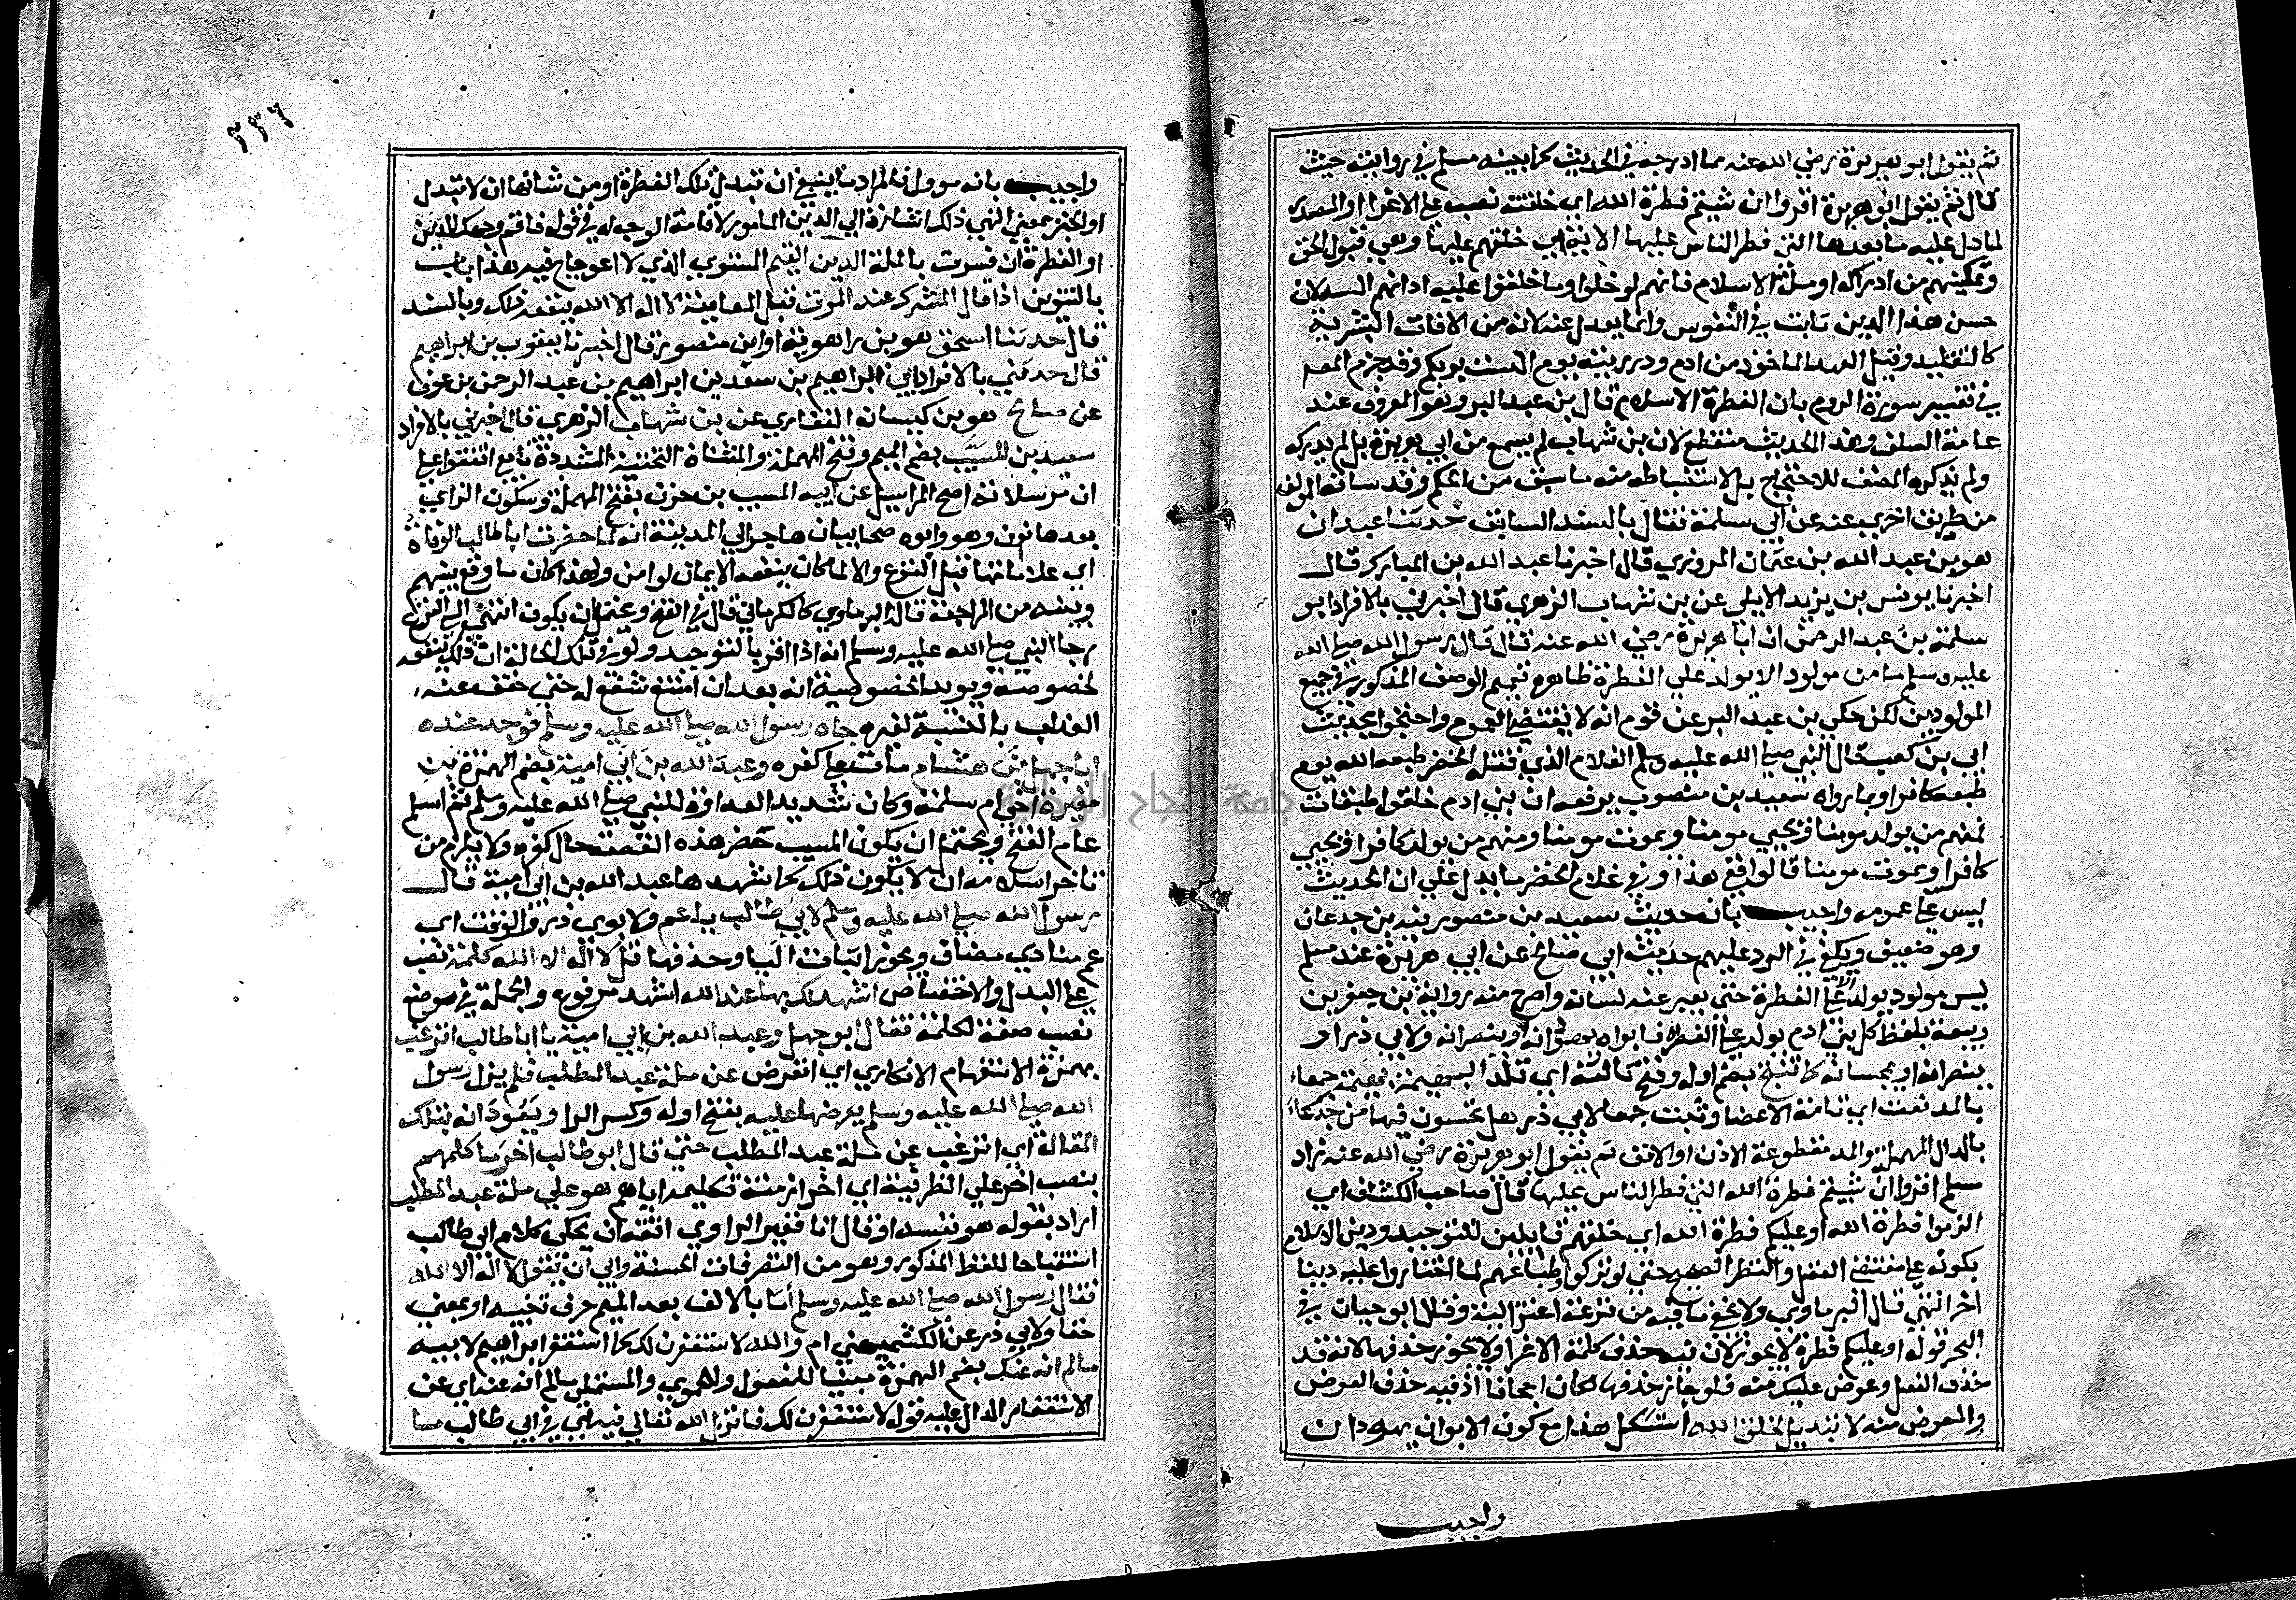 ثم يقول ابو هريرة رضي الله عنه مما ادرجه في الحديث كما بينه مسلم في روايته حيث
قال ثم يقول ابو هريرة اقروا ان شيتم فطرة الله اي خلقته نصب على الاغرا او المصدر
لما دل عليه ما بعدها التي فطر الناس عليها الاية اي خلقهم عليها وهي قبول الحق
وتمكينهم من ادراكه او ملة الاسلام فانهم لو خلوا وما خلقوا عليه اداهم اليه لان
حسن هذا الدين ثابت في النفوس وانما يعدل عنه لافة من الافات البشرية
كالتقليد وقيل العهد الماخوذ من ادم وذريته يوم الست بربكم وقد جزم المصـ
في تفسير سورة الروم بان الفطرة الاسلام قال بن عبد البر وهو المعروف عند
عامة السلف وهذا الحديث منقطع لان بن شهاب لم يسمع من ابي هريرة بل لم يدركه
ولم يذكره المصنف للاحتجاج بل لاستنباطه منه ما سبق من الحكم وقد ساقه المولف
من طريق اخرى عنه عن ابي سلمة فقال بالسند السابق حدثنا عبدان
هو بن عبد الله بن عثمان المروزي قال اخبرنا عبد الله بن المبارك قال
اخبرنا يونس بن يزيد الايلي عن بن شهاب الزهري قال اخبرني بالافراد ابو
سلمة بن عبد الرحمن ان ابا هريرة رضي الله عنه قال قال رسول الله صلى الله
عليه وسلم ما من مولود الا يولد على الفطرة ظاهره تعميم الوصف المذكور في جميع
المولودين لكن حكى بن عبد البر عن قوم انه لا يقتضي العموم واحتجوا بحديث
ابي بن كعب قال النبي صلى الله عليه وسلم الغلام الذي قتله الخضر طبعه الله يوم
طبعه كافرا وبما رواه سعيد بن منصور يرفعه ان بني ادم خلقوا طبقات
فمنهم من يولد مومنا ويحيى مومنا ويموت مومنا ومنهم من يولد كافرا ويحيى
كافرا ويموت مومنا قالوا ففي هذا وفي غلام الخضر ما يدل على ان الحديث
ليس على عمومه واجيب بان حديث سعيد بن منصور فيه بن جدعان
وهو ضعيف ويكفي في الرد عليهم حديث ابي صالح عن ابي هريرة عند مسلم
ليس مولود يولد الا على الفطرة حتى يعبر عنه لسانه واصرح منه رواية بن جعفر بن
ربيعة بلفظ كل بني ادم يولد على الفطرة فابواه يهودانه او ينصرانه ولابي ذر او
ينصرانه او يمجسانه كما تنتج بضم اوله وفتح ثالثه اي تلد البهيمة بهيمة جمعاء
بالمد نعت اي تامة الاعضا وثبت جمعا لابي ذر هل تحسون فيها من جدعاء
بالدال المهملة والمد مقطوعة الاذن او الانف ثم يقول ابو هريرة رضي الله عنه زاد
مسلم اقروا ان شيتم فطرة الله التي فطر الناس عليها قال صاحب الكشاف اي
الزموا فطرة الله او عليكم فطرة الله اي خلقهم قابلين للتوحيد ودين الاسلام
بكونه على مقتضى العقل والنظر الصحيح حتى لو تركوا وطباعهم لما اختاروا عليه دينا
اخر انتهى قال البرماوي ولا يخفى ما فيه من نزعة اعتزالية وقال ابو حيان في
البحر قوله او عليكم فطرة لا يجوز لان فيه حذف كلمة الاغرا ولا يجوز حذفها لانه قد
حذف الفعل وعوض عليك منه فلو جاز حذفها لكان اجحافا اذ فيه حذف العوض
والمعوض منه لا تبديل لخلق الله استشكل هذا مع كون الابوان يهودان
واجيب
٢٣٦
واجيب بانه موول فالمراد ما ينبغي ان تبدل تلك الفطرة او من شانها ان لا تبدل
او الخبر بمعنى النهي ذلك اشارة الى الدين المامور لاقامة الوجه له في قوله فاقم وجهك للدين
او الفطرة ان فسرت بالملة الدين القيم المستوي الذي لا اعوجاج فيه هذا باب
بالتنوين اذا قال المشرك عند الموت قبل المعاينة لا اله الا الله ينفعه ذلك وبالسند
قال حدثنا اسحق هو بن راهويه او ابن منصور قال اخبرنا يعقوب بن ابراهيم
قال حدثني بالافراد ابي ابراهيم بن سعد بن ابراهيم بن عبد الرحمن بن عوف
عن صالح هو بن كيسان الغفاري عن بن شهاب الزهري قال اخبرني بالافراد
سعيد بن المسيب بضم الميم وفتح المهملة والمثناة التحتية المشددة تابع اتفقوا على
ان مرسلاته اصح المراسيل عن ابيه المسيب بن حزن بفتح المهملة وسكون الزاي
بعدها نون وهو وابوه صحابيان هاجرا الى المدينة انه لما حضرت ابا طالب الوفاة
اي علاماتها قبل النزع والا لما كان ينفعه الايمان لو امن ولهذا كان ما وقع بينهم
وبينه من المراجعة قاله البرماوي كالكرماني قال في الفتح ويحتمل ان يكون انتهى الى النزع لكن
رجا النبي صلى الله عليه وسلم انه اذا اقر بالتوحيد ولو في تلك الحالة ان ذلك ينفعه
لخصوصه ويويد الخصوصية انه بعد ان امتنع شفع له حتى خفف عنه
العذاب بالنسبة لغيره جاه رسول الله صلى الله عليه وسلم فوجد عنده
ابا جهل بن هشام مات على كفره وعبد الله بن ابي امية بضم الهمزة بن
مغيرة اخي ام سلمة وكان شديد العداوة للنبي صلى الله عليه وسلم ثم اسلم
عام الفتح ويحتمل ان يكون المسيب حضر هذه القصة حال كفره ولا يلزم من
تاخر اسلامه ان لا يكون ذلك كما شهدها عبد الله بن ابي امية قال
رسول الله صلى الله عليه وسلم لابي طالب يا عم ولابوي ذر والوقت اي
عم منادي مضاف ويجوز اثبات اليا وحذفها قل لا اله الا الله كلمة نصب
على البدل والاختصاص اشهد لك بها عند الله اشهد مرفوع والجملة في موضع
نصب صفة لكلمة فقال ابو جهل وعبد الله بن ابي امية يا ابا طالب اترغب
بهمزة الاستفهام الانكاري اي اتعرض عن ملة عبد المطلب فلم يزل رسول
الله صلى الله عليه وسلم يعرضها عليه بفتح اوله وكسر الرا ويعودان بتلك
المقالة اي اترغب عن ملة عبد المطلب حتى قال ابو طالب اخر ما كلمهم
بنصب اخر على الظرفية اي اخر ازمنة تكليمه اياهم هو على ملة عبد المطلب
اراد بقوله هو نفسه او قال انا فغير الراوي انفة ان يحكي كلام ابي طالب
استقباحا للفظ المذكور وهو من التصرفات الحسنة وابى ان يقول لا اله الا الله
فقال رسول الله صلى الله عليه وسلم اما بالالف بعد الميم حرف تنبيه او بمعنى
حقا ولابي ذر عن الكشميهني ام والله لاستغفرن لك كما استغفر ابراهيم لابيه
مالم انه عنك بضم الهمزة مبنيا للمفعول وللحموي والمستملي مالم انه عنه اي عن
الاستغفار الدال عليه قوله لاستغفرن لك فانزل الله تعالى فيه اي في ابي طالب ما